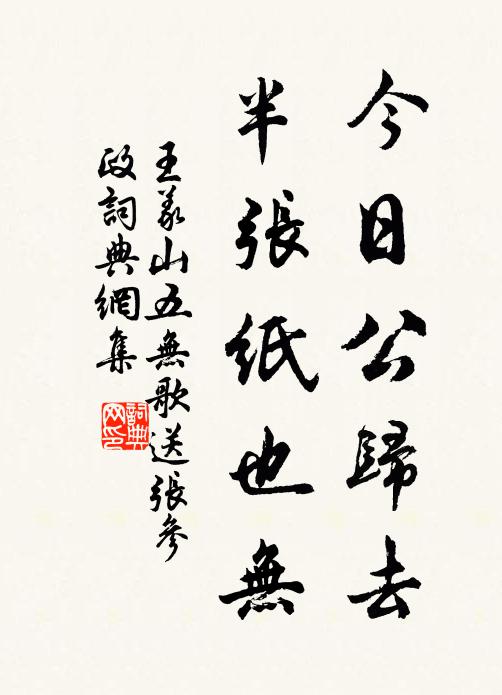 今日公歸去
半張紙也無
王義山五無歌送張參
政詞典網集
詞典网印